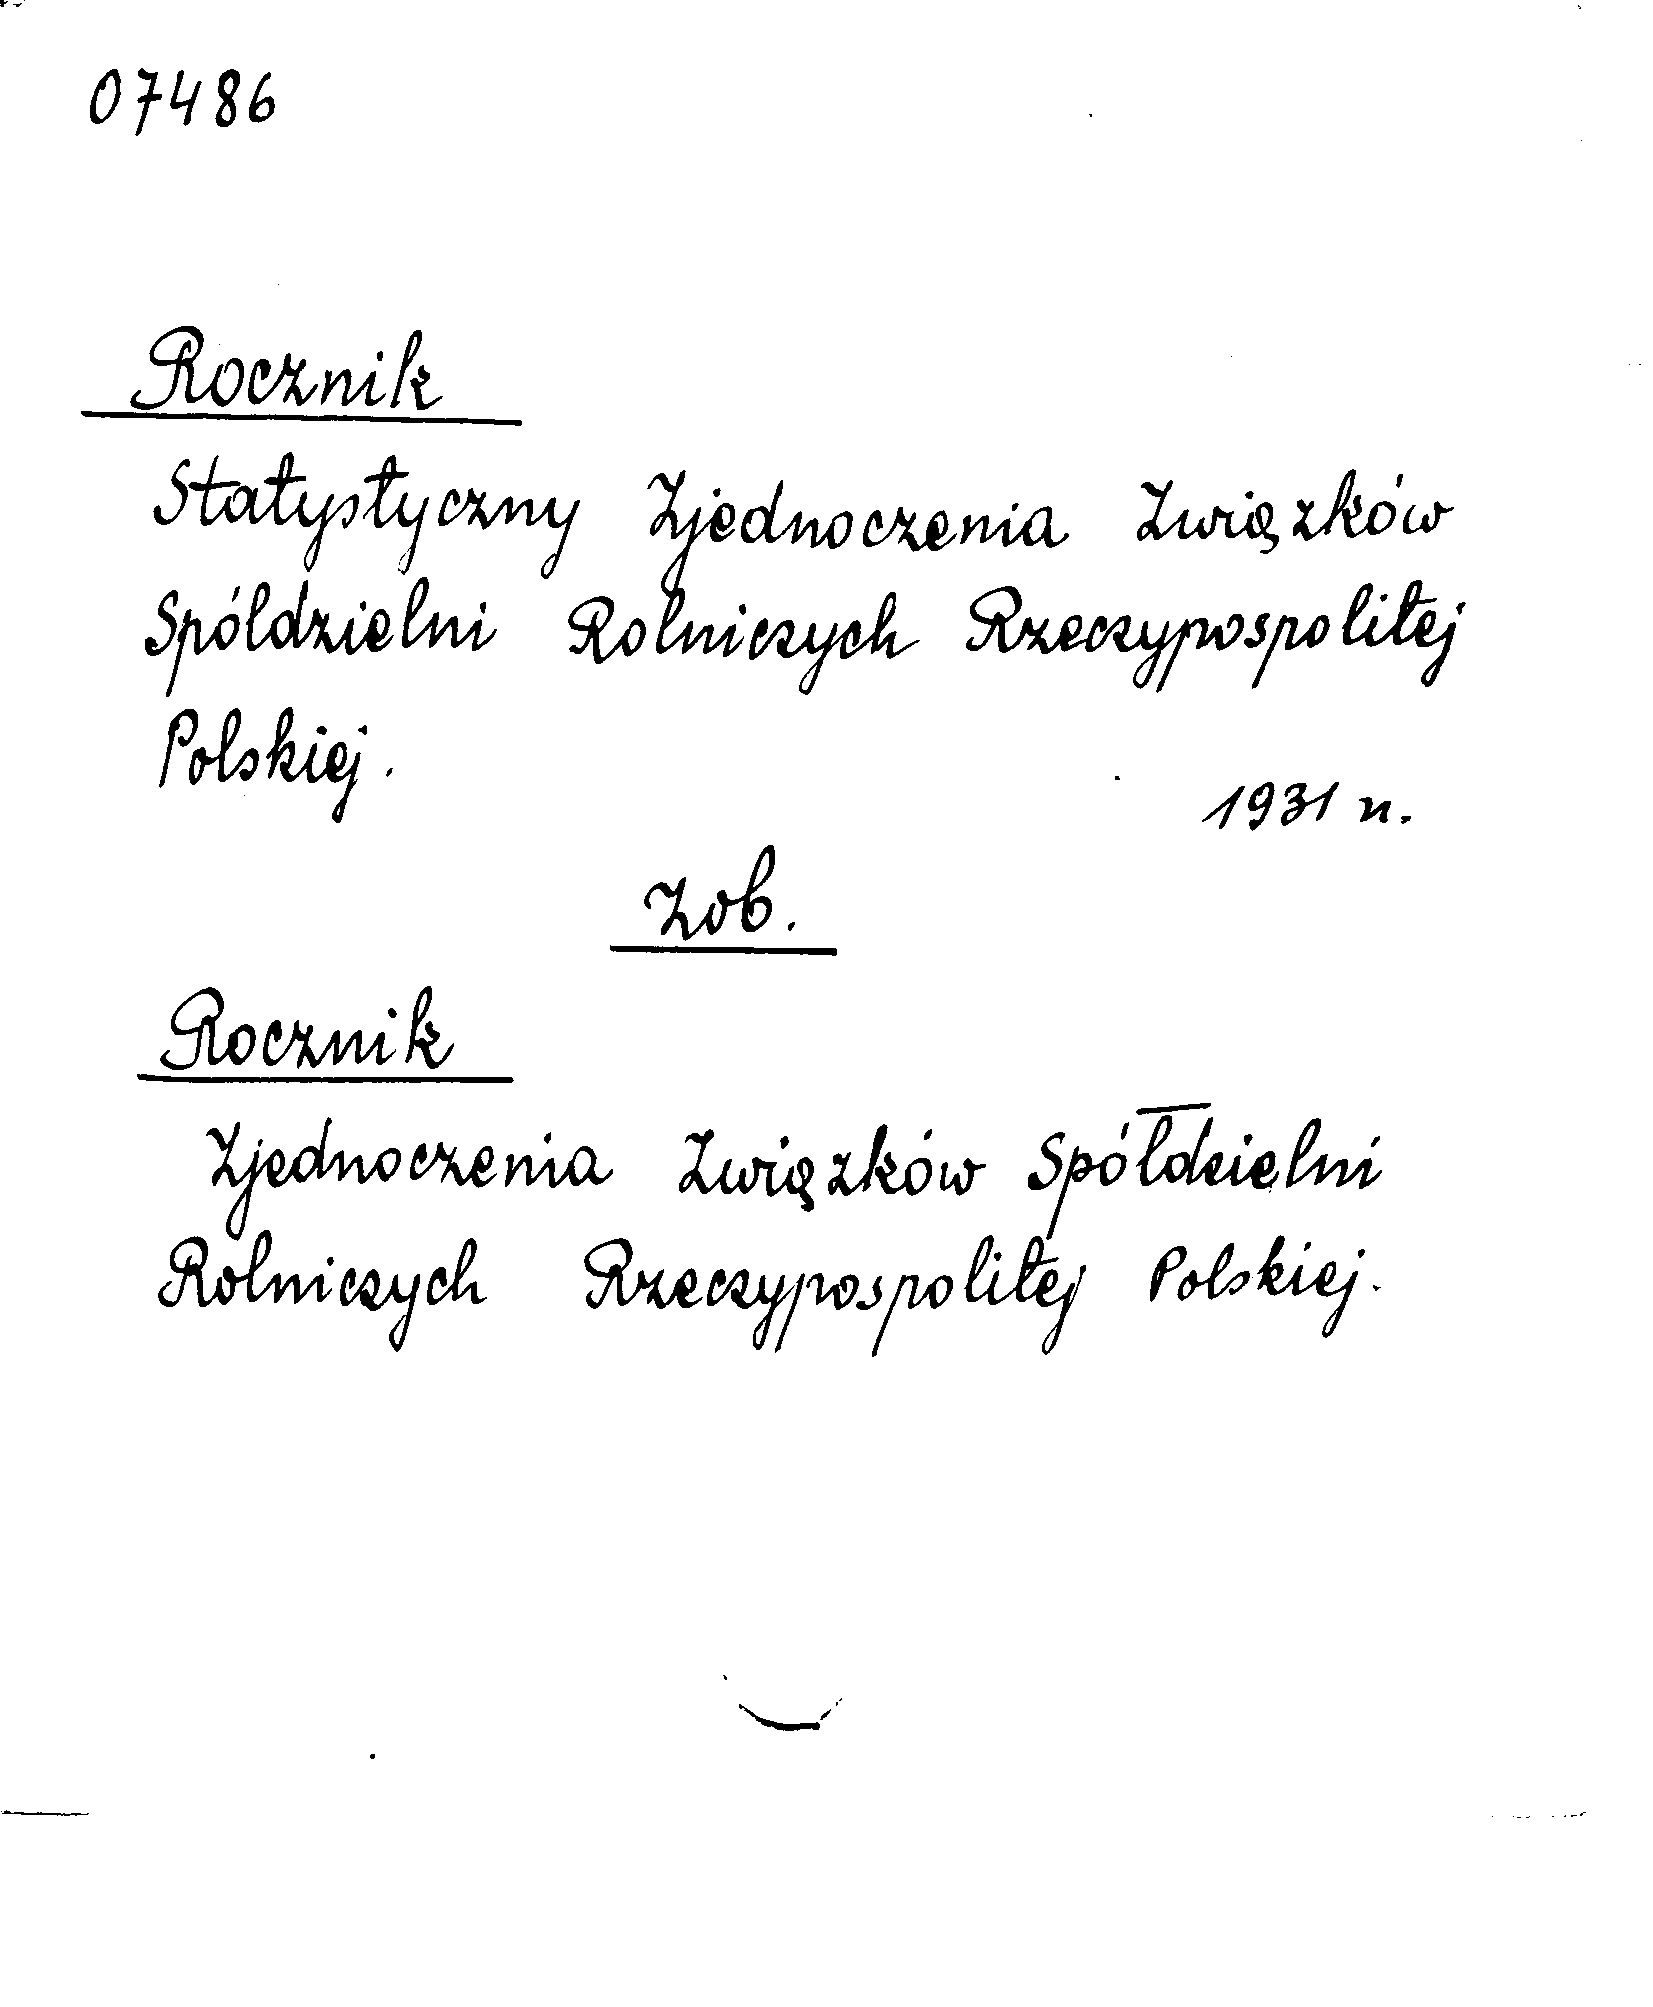 07486
Rocznik
Statystyczny Zjednoczenia Związków
Spóldzielni Rolniczych Rzeczypospolitej
Polskiej.
1931 n.
Zob.
Rocznik
Zjednoczenia Związków Spółdzielni
Rolniczych Rzeczypospolitej Polskiej.